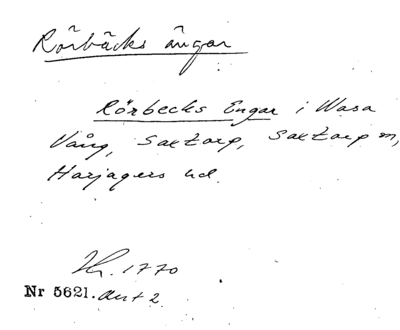 Rörbäcks ängar
Rörbecks Engar i Wasa
Vång, Saxtorp, Saxtorp sn,
Harjagers hd.
1770
Nr 5621. Akt 2.